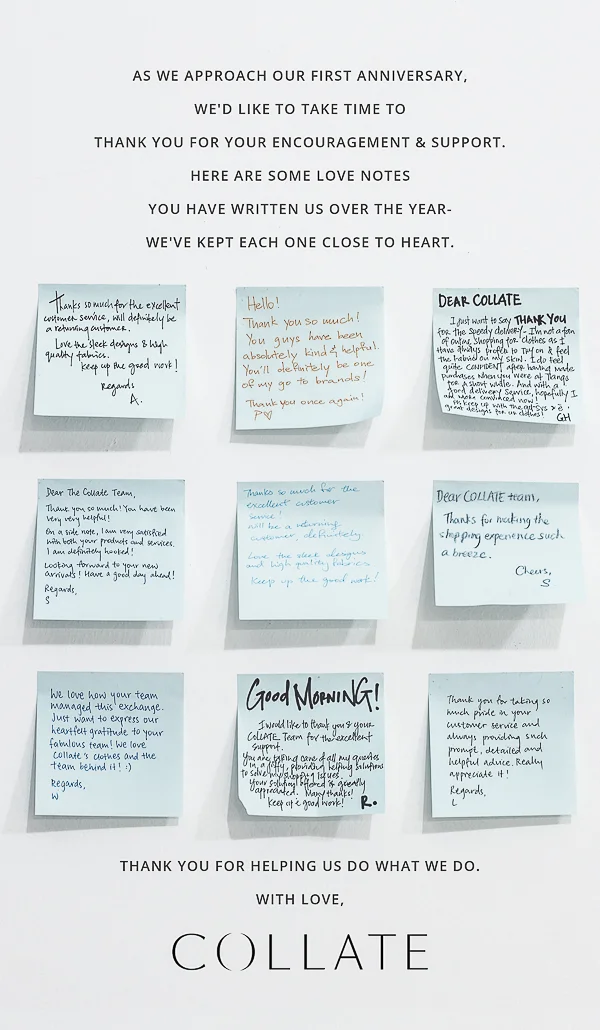 AS WE APPROACH OUR FIRST ANNIVERSARY,
WE'D LIKE TO TAKE TIME TO
THANK YOU FOR YOUR ENCOURAGEMENT & SUPPORT.
HERE ARE SOME LOVE NOTES
YOU HAVE WRITTEN US OVER THE YEAR-
WE'VE KEPT EACH ONE CLOSE TO HEART.
Thanks so much for the excellent
customer service, will definitely be
a returning customer.
Love the sleek designs & high
quality fabrics.
keep up the good work!
Regards
A.
Hello!
Thank you so much!
You guys have been
absolutely kind & helpful.
You'll definitely be one
of my go to brands!
Thank you once again!
P♡
DEAR COLLATE
I just want to say THANK YOU
for the speedy delivery. I'm not a fan
of online shopping for clothes as I
have always prefer to try on & feel
the fabric on my skin. I do feel
quite CONFIDENT after having made
purchases when you were at Tangs
for a short while. And with a
good delivery service, hopefully I
am more convinced now!
Pls keep up with the
great designs for us clothes!
GH
Dear The Collate Team,
Thank you so much! You have been
very very helpful!
On a side note, I am very satisfied
with both your products and services.
I am definitely hooked!
Looking forward to your new
arrivals! Have a good day ahead!
Regards,
S
Thanks so much for the
excellent customer
service!
will be a returning
customer, definitely
Love the sleek designs
and high quality fabrics
Keep up the good work!
Dear COLLATE team,
Thanks for making the
shopping experience such
a breeze.
Cheers,
S
We love how your team
managed this exchange.
Just want to express our
heartfelt gratitude to your
fabulous team! We love
Collate's clothes and the
team behind it! :)
Regards,
W
Good MORNING!
I would like to thank you & your
COLLATE Team for the excellent
support.
You are taking care of all my queries
in a jiffy, providing helping solutions
to solve my shopping issues.
Your solution offered is greatly
appreciated. Many thanks!
keep up good work!
R.
Thank you for taking so
much pride in your
customer service and
always providing such
prompt, detailed and
helpful advice. Really
appreciate it!
Regards,
L
THANK YOU FOR HELPING US DO WHAT WE DO.
WITH LOVE,
COLLATE